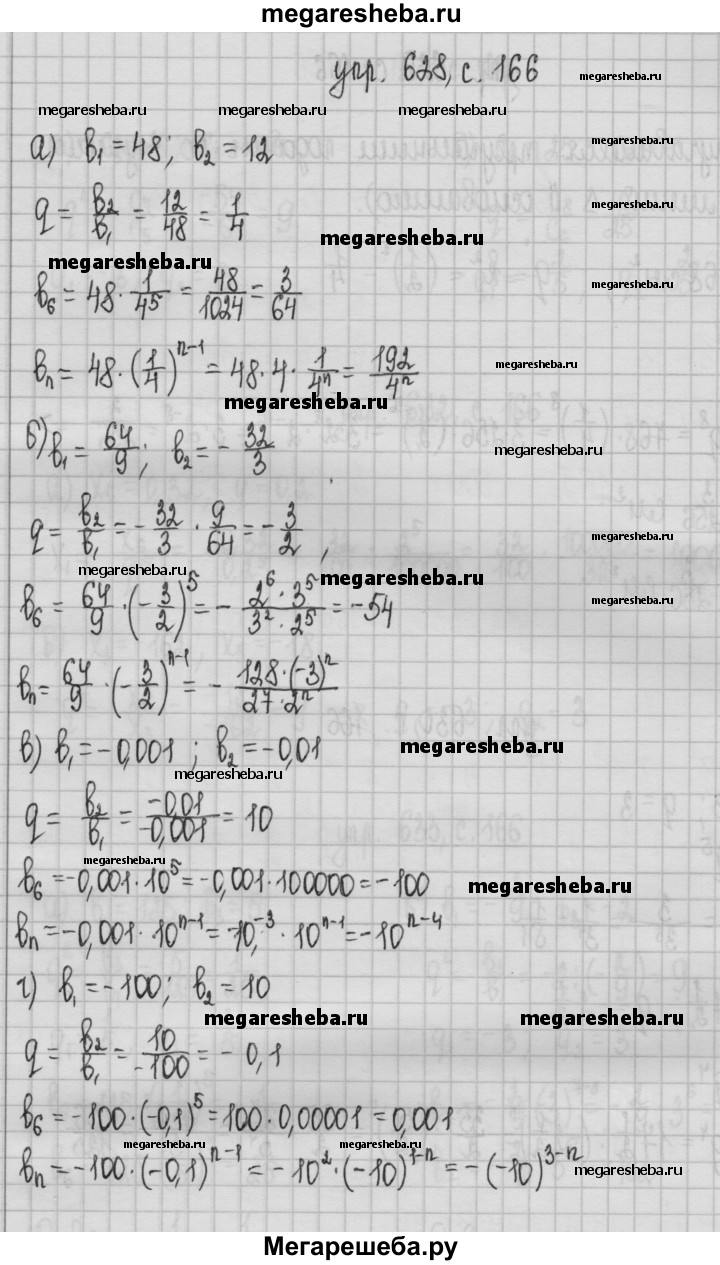 megaresheba.ru
упр. 628, с. 166 megaresheba.ru
megaresheba.ru megaresheba.ru megaresheba.ru
а) b₁ = 48; b₂ = 12 megaresheba.ru
q = b₂/b₁ = 12/48 = 1/4 megaresheba.ru
megaresheba.ru
megaresheba.ru
b₆ = 48 · 1/4⁵ = 48/1024 = 3/64 megaresheba.ru
bₙ = 48 · (1/4)ⁿ⁻¹ = 48 · 4 · 1/4ⁿ = 192/4ⁿ megaresheba.ru
megaresheba.ru
б) b₁ = 64/9; b₂ = - 32/3 megaresheba.ru
q = b₂/b₁ = - 32/3 · 9/64 = - 3/2, megaresheba.ru
megaresheba.ru megaresheba.ru
b₆ = 64/9 · (- 3/2)⁵ = - 2⁶ · 3⁵/3² · 2⁵ = -54 megaresheba.ru
bₙ = 64/9 · (- 3/2)ⁿ⁻¹ = - 128 · (-3)ⁿ/27 · 2ⁿ
в) b₁ = -0,001; b₂ = -0,01 megaresheba.ru
megaresheba.ru
q = b₂/b₁ = -0,01/-0,001 = 10
megaresheba.ru
b₆ = -0,001 · 10⁵ = -0,001 · 100000 = -100 megaresheba.ru
bₙ = -0,001 · 10ⁿ⁻¹ = -10⁻³ · 10ⁿ⁻¹ = -10ⁿ⁻⁴
г) b₁ = -100; b₂ = 10
megaresheba.ru megaresheba.ru
q = b₂/b₁ = 10/-100 = - 0,1
b₆ = -100 · (-0,1)⁵ = 100 · 0,00001 = 0,001
megaresheba.ru megaresheba.ru
bₙ = -100 · (-0,1)ⁿ⁻¹ = - 10² · (-10)¹⁻ⁿ = - (-10)³⁻ⁿ megaresheba.ru
Мегарешеба.ру